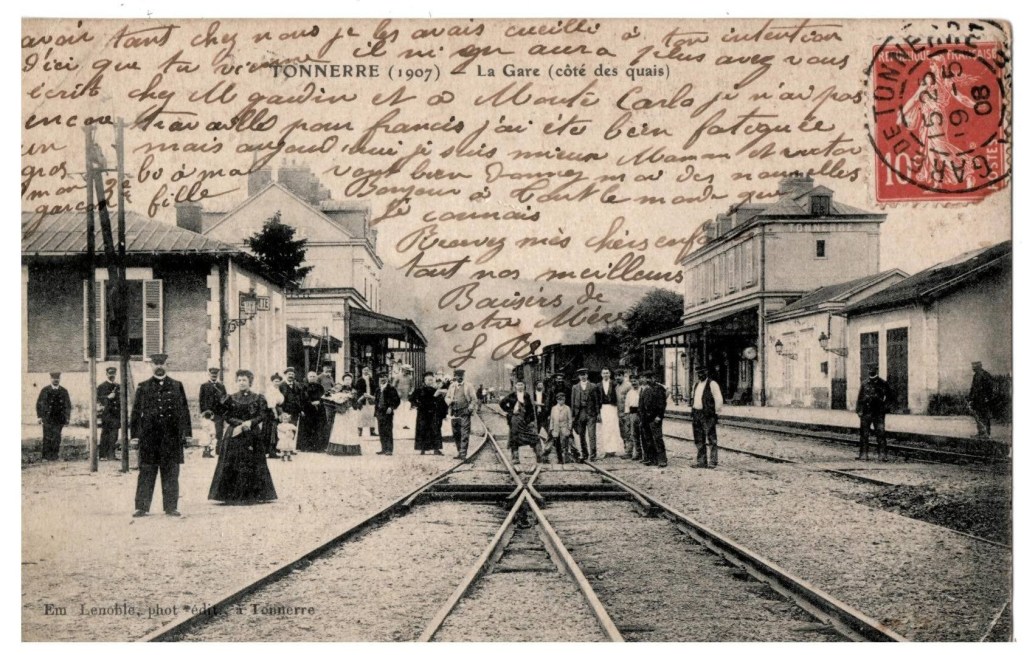 avoir tant chez nous je les avais cueilli à ton intention
d'ici que tu vienne il ni en aura plus avez vous
TONNERRE (1907) - La Gare (côté des quais)
écrit chez M gardin et a Monte Carlo je n'ai pas
encore travaillé pour francis j'ai éte bien fatiguée
un mais aujourd'hui je suis mieux Maman et
gros bo à ma vont bien Donnez moi des nouvelles
mon garcon fille Bonjour à tout le monde que
je connais
Recevez mes chers enf
tant nos meilleurs
Baisers de
votre Mère
REPUBLIQUE FRANÇAISE
10
DE TONNERRE
15 25
19 -5
08
GARE
TONNERRE
Em Lenoble, phot édit., à Tonnerre